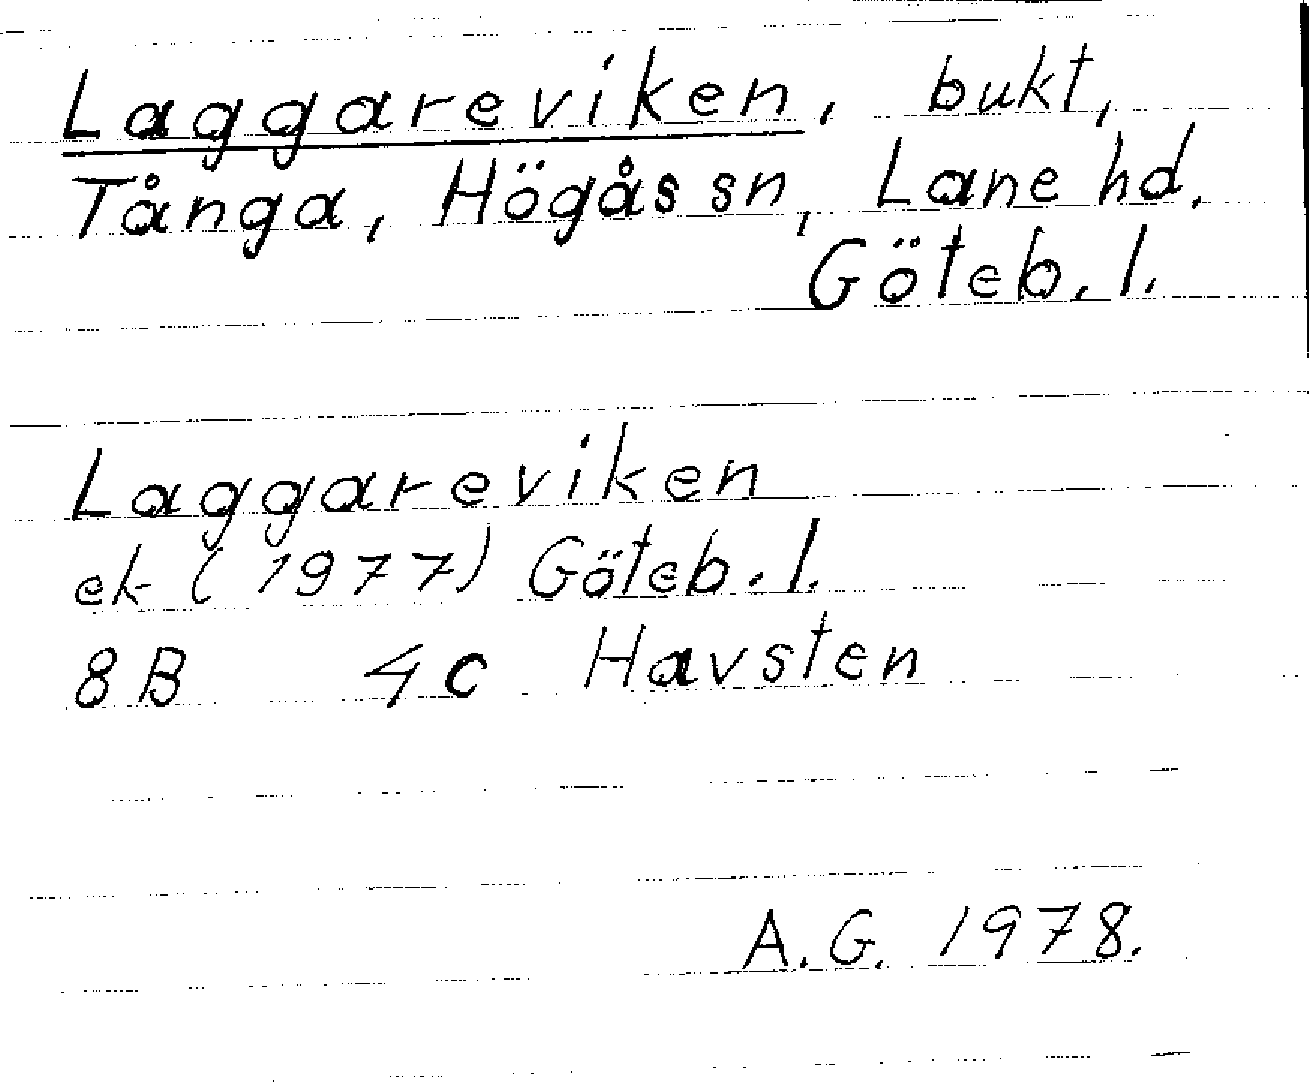 Laggareviken, bukt,
Tånga, Högås sn, Lane hd,
Göteb. l.
Laggareviken
ek (1977) Göteb. l.
8B 4c Havsten
A.G. 1978.